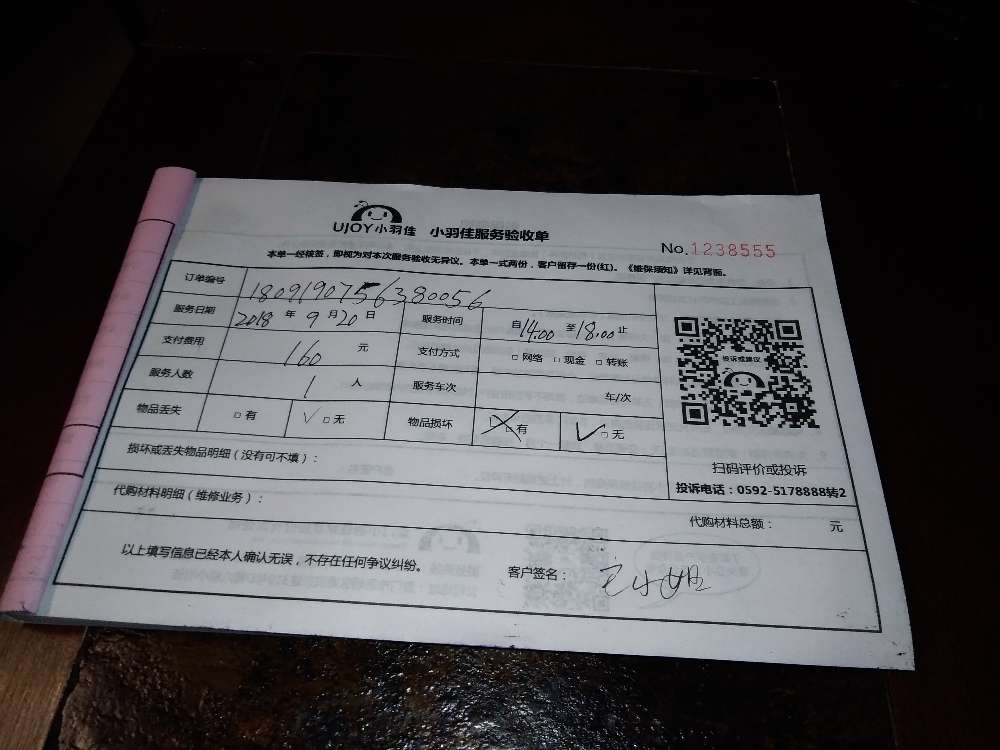 UJOY小羽佳 小羽佳服务验收单
No.1238555
本单一经核签,即视为对本次服务验收无异议。本单一式两份,客户留存一份(红)。《维保须知》详见背面。
订单编号 1809190756380056
服务日期 2018 年 9 月 20 日 服务时间 自 14.00 至 18.00 止
支付费用 160 元 支付方式 □ 网络 □ 现金 □ 转账
服务人数 1 人 服务车次 车/次
物品丢失 □ 有 ✓ □ 无 物品损坏 □ 有 ✓ □ 无
投诉或建议
扫码评价或投诉
投诉电话:0592-5178888转2
损坏或丢失物品明细(没有可不填):
代购材料明细(维修业务):
代购材料总额: 元
以上填写信息已经本人确认无误,不存在任何争议纠纷。 客户签名: